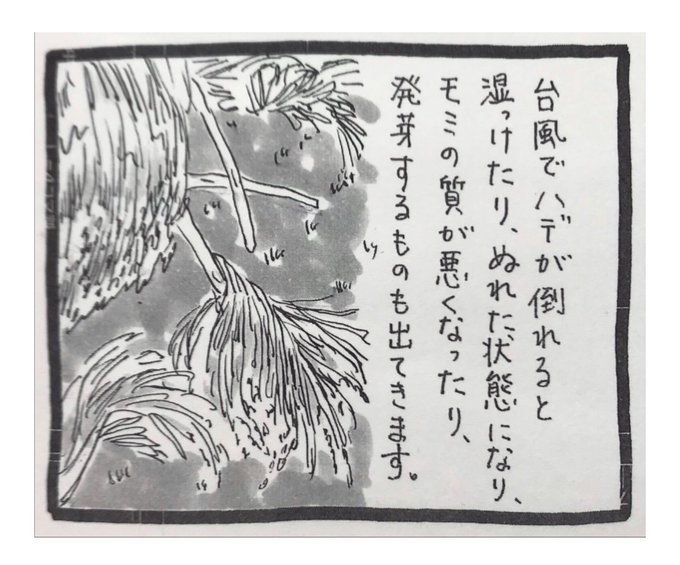 台風でハデが倒れると
湿っけたり、ぬれた状態になり、
モミの質が悪くなったり、
発芽するものも出てきます。